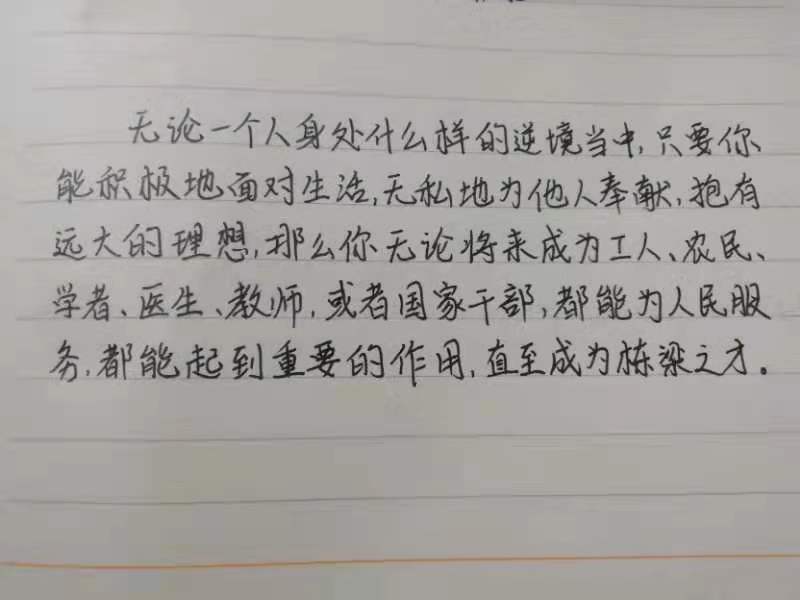 无论一个人身处什么样的逆境当中,只要你
能积极地面对生活,无私地为他人奉献,抱有
远大的理想,那么你无论将来成为工人、农民、
学者、医生、教师,或者国家干部,都能为人民服
务,都能起到重要的作用,直至成为栋梁之才。